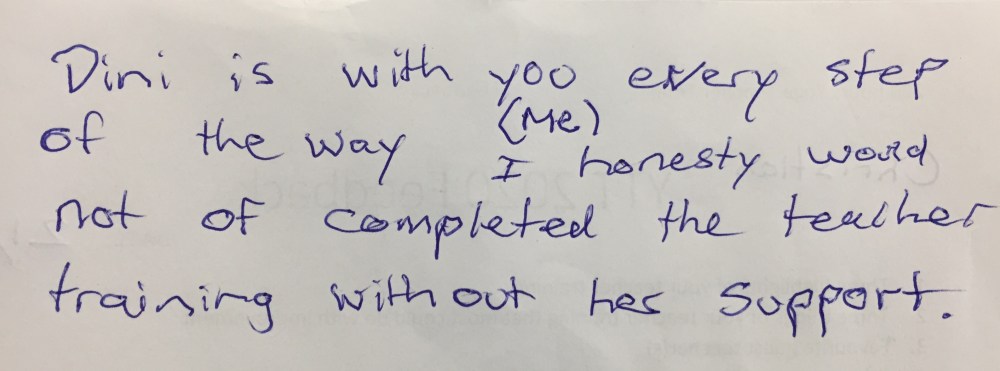 Dini is with you every step
(me)
of the way I honesty would
not of completed the teacher
training without her support.